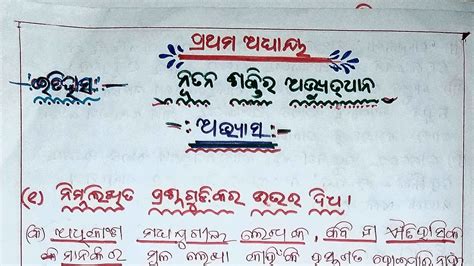 ପ୍ରଥମ ଅଧ୍ୟାୟ
ଇତିହାସ
ନୂତନ ଶକ୍ତିର ଅଭ୍ୟୁତ୍‌ଥାନ
-: ଅଭ୍ୟାସ :-
(୧) ନିମ୍ନଲିଖିତ ପ୍ରଶ୍ନଗୁଡ଼ିକର ଉତ୍ତର ଦିଅ।
(କ) ଅଧିକାଂଶ ମଧ୍ୟଯୁଗୀୟ ଲେଖକ, କବି ଓ ଐତିହାସିକ
ମାନଙ୍କର ମୂଳ ଲେଖା କାହିଁକି